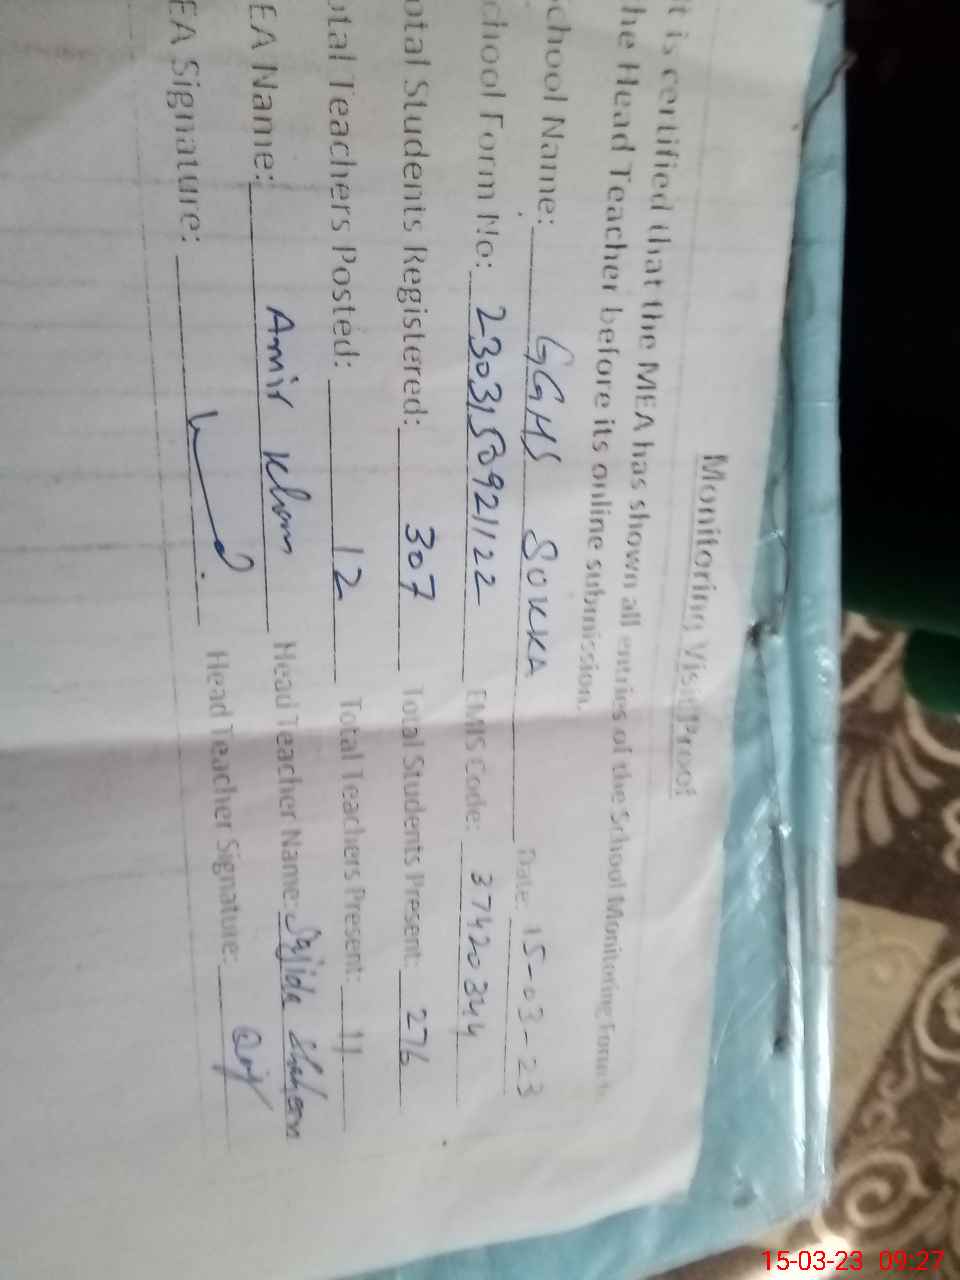 Monitoring Visit Proof
it is certified that the MEA has shown all entries of the School Monitoring
he Head Teacher before its online submission.
chool Name: GGHS SUKKA Date: 15-03-23
chool Form No: EMIS Code: 37420344
otal Students Registered: 307 Total Students Present: 276
otal Teachers Posted: 12 Total Teachers Present: 11
EA Name: Amir Khan Head Teacher Name: Sajida
EA Signature: Head Teacher Signature:
15-03-23 09:27